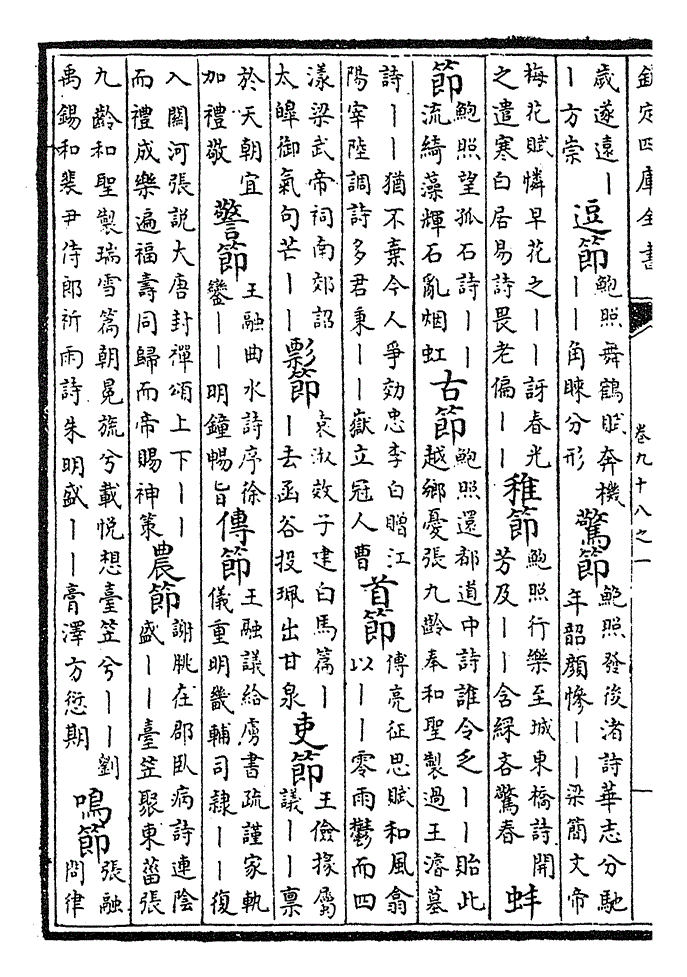 欽定四庫全書 卷九十八之一
歲遂遠丨丨方崇 逗節 鮑照舞鶴賦奔機丨丨角睞分形 驚節 鮑照發後渚詩華志分馳年韶顏慘丨丨梁簡文帝
梅花賦憐早花之丨丨訝春光之遣寒白居易詩畏老偏丨丨 稚節 鮑照行樂至城東橋詩開芳及丨丨含綵吝驚春 蚌
節 鮑照望孤石詩丨丨流綺藻輝石亂烟虹 古節 鮑照還都道中詩誰令乏丨丨貽此越鄉憂張九齡奉和聖製過王濬墓
詩丨丨猶不棄今人爭効忠李白贈江陽宰陸調詩多君秉丨丨嶽立冠人曹 首節 傅亮征思賦和風翕以丨丨零雨鬱而四
漾梁武帝祠南郊詔太皞御氣句芒丨丨 剽節 袁淑效子建白馬篇丨丨去函谷投珮出甘泉 吏節 王儉掾屬議丨丨禀
於天朝宜加禮敬 警節 王融曲水詩序徐鑾丨丨明鐘暢旨 傳節 王融議給虜書疏謹家執儀重明畿輔司隸丨丨復
入關河張說大唐封禪頌上下丨丨而禮成樂遍福壽同歸而帝賜神策 農節 謝朓在郡臥病詩連陰盛丨丨臺笠聚東菑張
九齡和聖製瑞雪篇朝冕旒兮載悅想臺笠兮丨丨劉禹錫和裴尹侍郎祈雨詩朱明盛丨丨膏澤方愆期 鳴節 張融問律